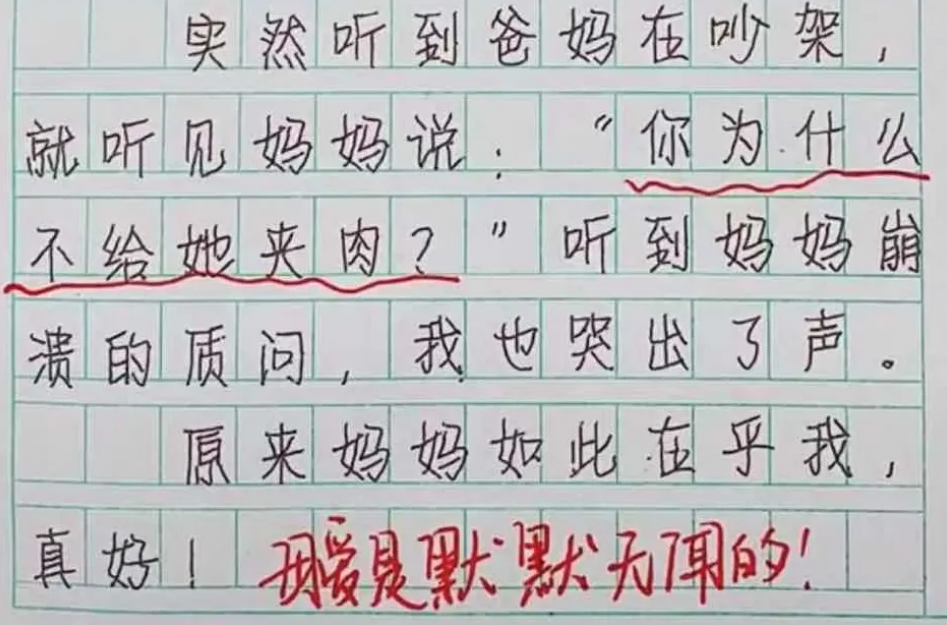 突然听到爸妈在吵架，
就听见妈妈说：“你为什么
不给她夹肉？”听到妈妈崩
溃的质问，我也哭出了声。
原来妈妈如此在乎我，
真好！母爱是默默无闻的！